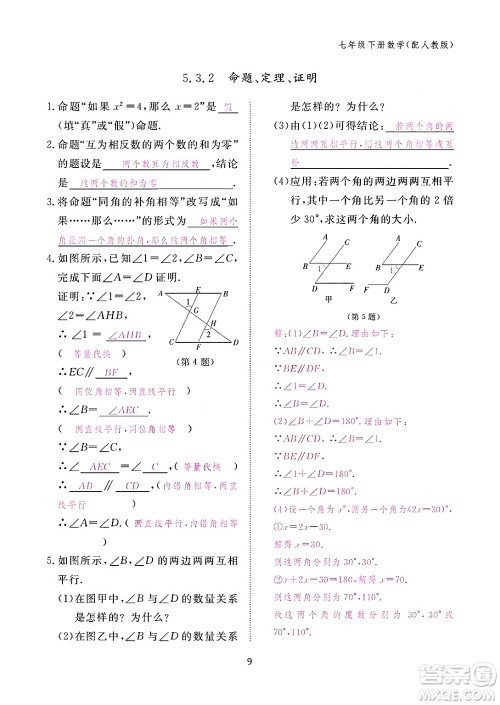 七年级下册数学(配人教版)
5.3.2 命题、定理、证明
1.命题“如果 x²=4,那么 x=2”是 假
(填“真”或“假”)命题.
2.命题“互为相反数的两个数的和为零”
的题设是 两个数互为相反数,结论
是 这两个数的和为零.
3.将命题“同角的补角相等”改写成“如
果……那么……”的形式为 如果两个
角是同一个角的补角,那么这两个角相等.
4.如图所示,已知∠1=∠2,∠B=∠C,
完成下面∠A=∠D证明.
证明:∵∠1=∠2,∠
∠2=∠AHB,
∴∠1=∠AHB.
(等量代换)
∴EC∥ BF
(同位角相等,两直线平行)
∴∠B=∠AEC.
(两直线平行,同位角相等)
又∵∠B=∠C,
∴∠AEC=∠C,(等量代换)
∴AB∥CD,(内错角相等,两直
线平行)
∴∠A=∠D.(两直线平行,内错角相
等)
A
B
E
G
H
F
C
D
1
2
(第4题)
5.如图所示,已知两个角的两边两两互相
平行.
(1)在图甲中,∠B与∠D的数量关系
是怎样的?为什么?
(2)在图乙中,∠B与∠D的数量关系
是怎样的?为什么?
(3)由(1)(2)可得结论:若两个角的两
边两两互相平行,则这两个角相等或互
补.
(4)应用:若两个角的两边两两互相平
行,其中一个角比另一个角的 2 倍
少 30°,求这两个角的大小.
1
1
甲 乙
(第5题)
解:(1)∠B=∠D.理由:
∵AB∥CD,∴∠B=∠1.
∵BE∥DF,∴∠1=∠D.
∴∠B=∠D.
(2)∠B+∠D=180°.理由:
∵AB∥CD,∴∠B=∠1.
∵BE∥DF,
∴∠1+∠D=180°.
∴∠B+∠D=180°.
(4)设一个角为 x,则另一个角为 2x-30°.
①x=2x-30°.
解得 x=30°.
则这两角分别为 30°,30°.
②x+2x-30°=180°.
解得 x=70°.
则这两角分别为 70°,110°.
故这两个角的度数分别为 30°,30°或
70°,110°.
9